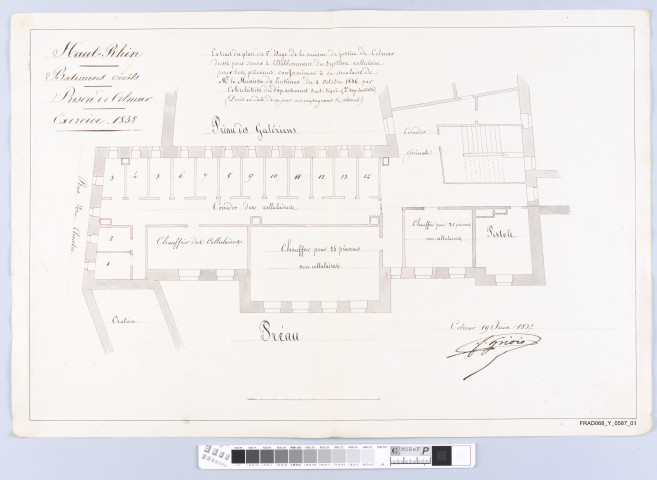 Haut-Rhin
Batimens civils
Prison de Colmar
Exercice 1838
Extrait du plan du 1er Etage de la maison de justice de Colmar
dressé pour servir à l'établissement du système cellulaire
pour les prévenus, conformément à la circulaire de
Mr le Ministre de l'intérieur du 2 octobre 1836, par
l'architecte du Département
Préau des Galériens
Corridor
Général
3 4 5 6 7 8 9 10 11 12 13 14
Corridor des cellulaires
2
1
Chauffoir des Cellulaires
Chauffoir pour 28 prévenus
non cellulaires
Chauffoir pour 21 prévenus
non cellulaires
Pistole
Rue des
Oratoire
Préau
Colmar 19 Juin 1837
FRAD068_Y_0587_01